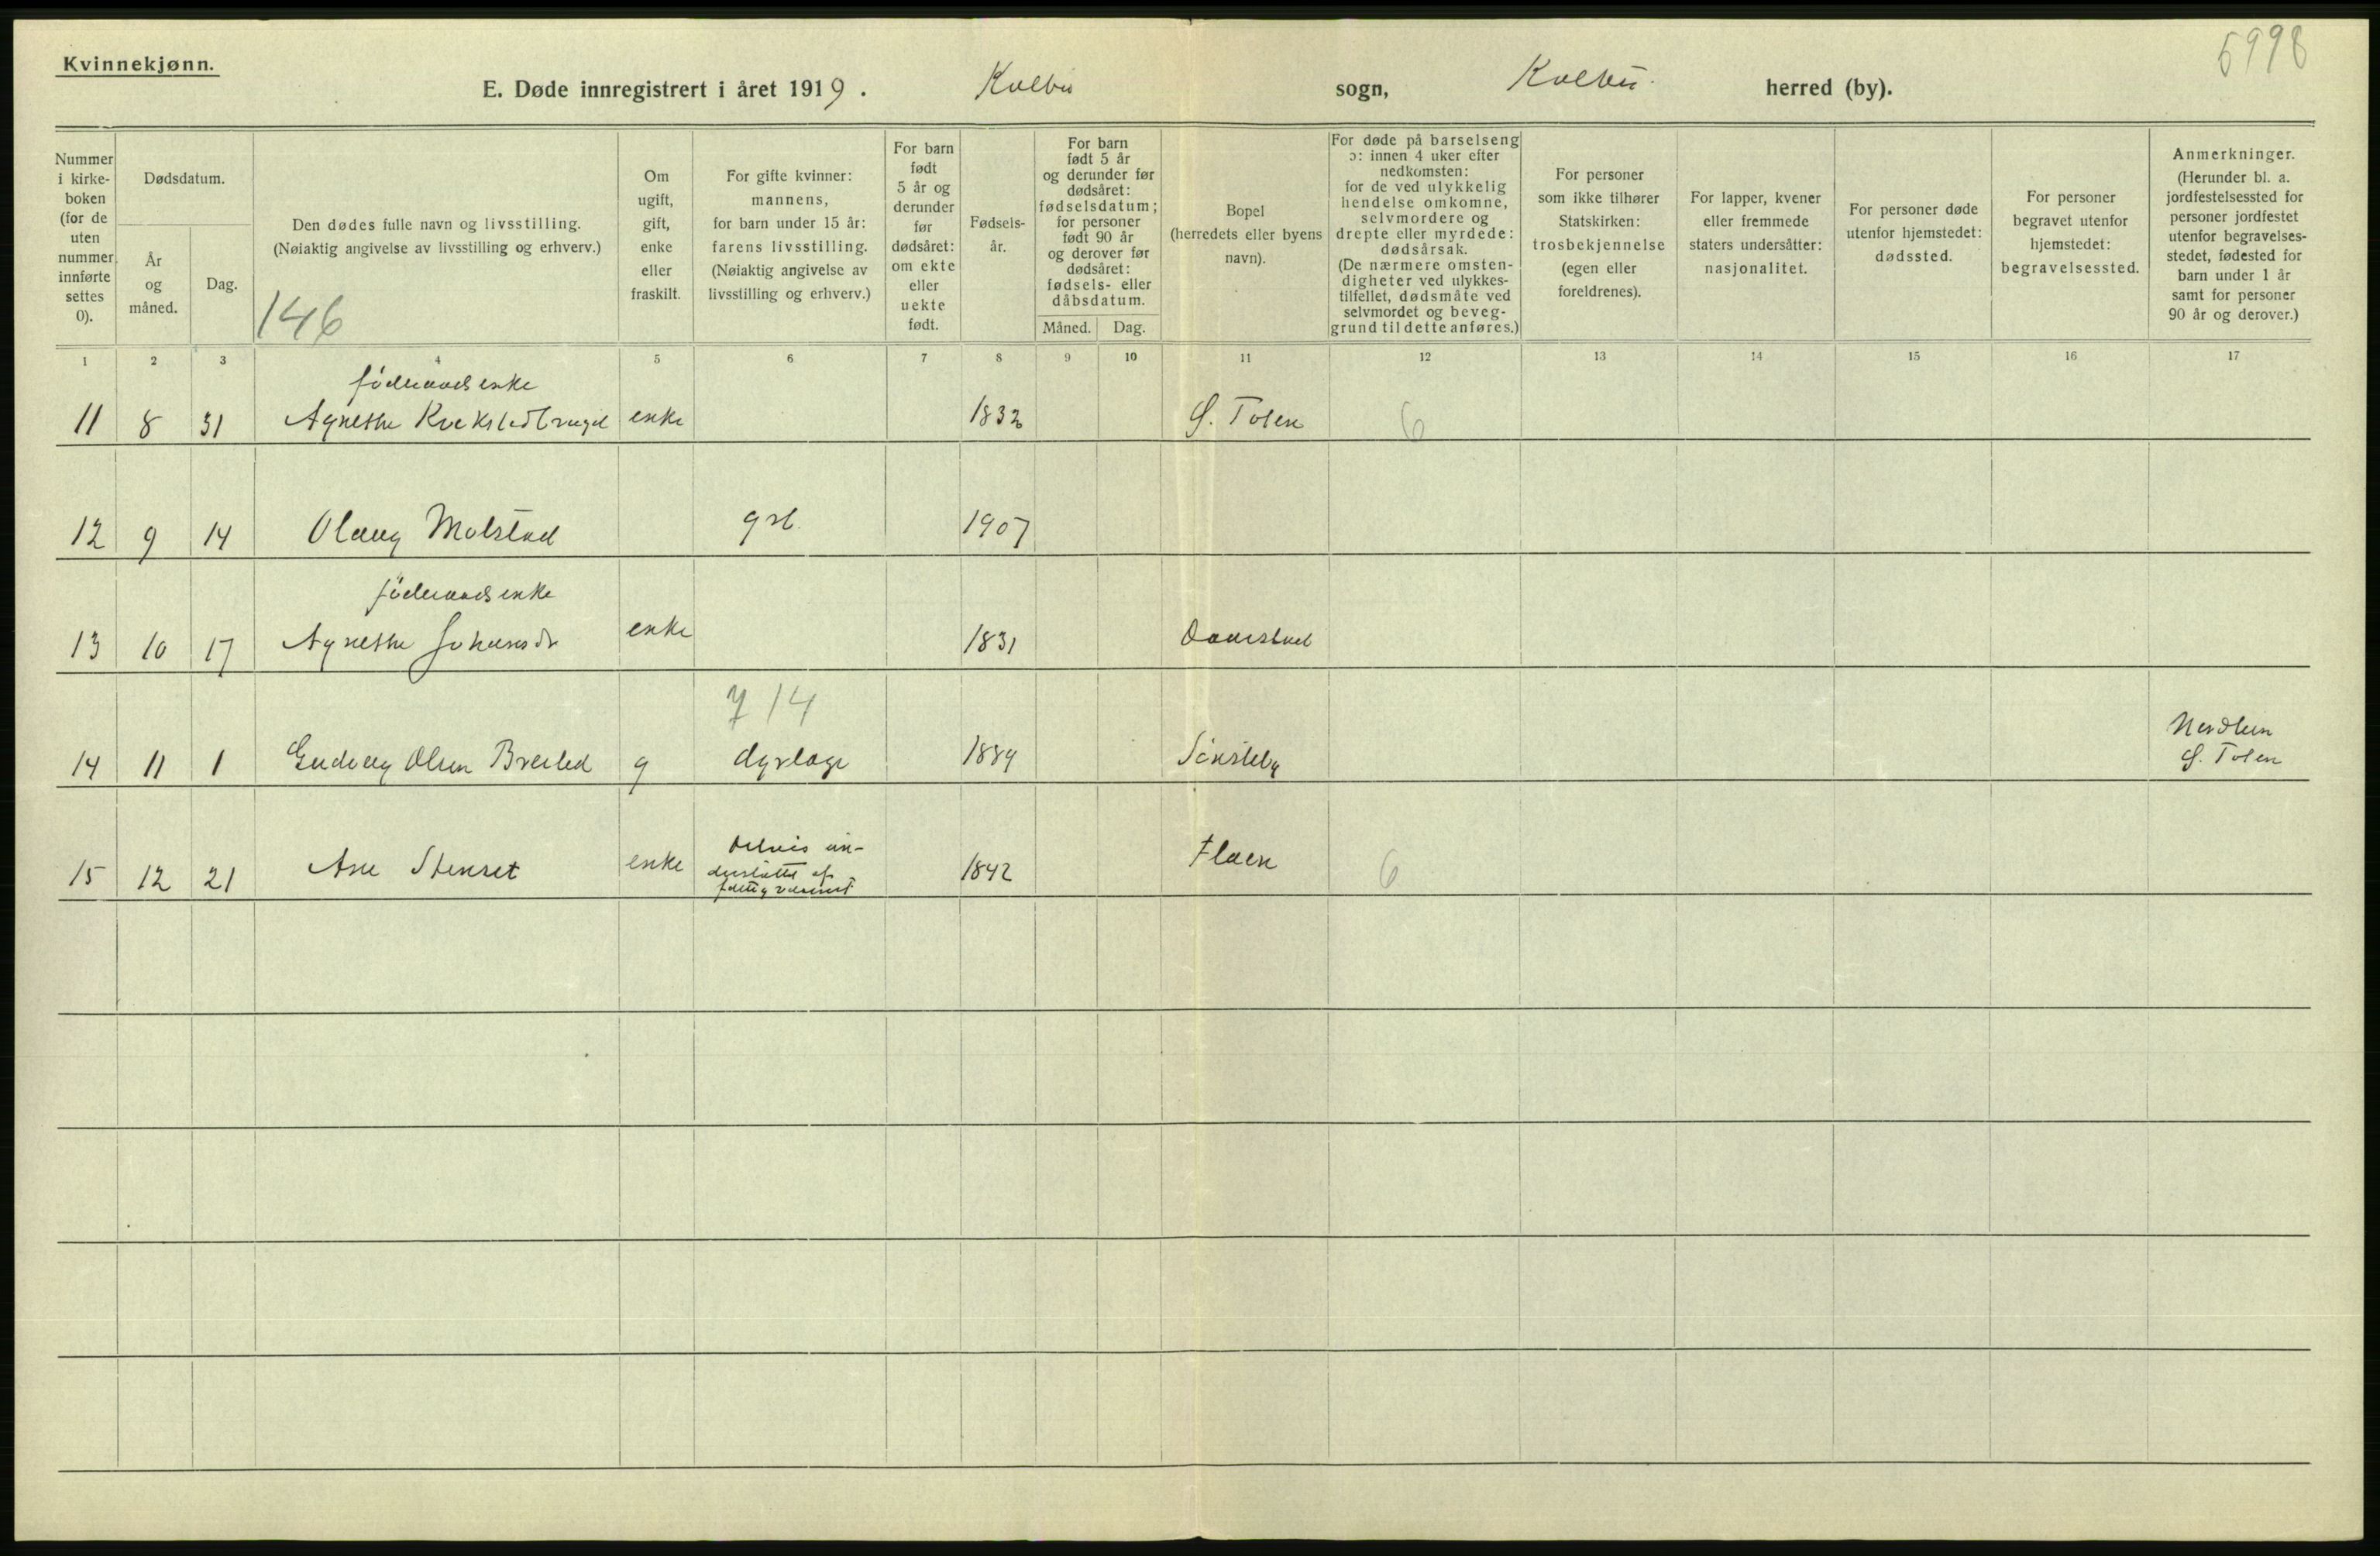 Kvinnekjønn.
5998
E. Døde innregistrert i året 1919. Kolbu sogn, Kolbu herred (by).
Nummer i kirke-boken (for de uten nummer innførte settes 0).
Dødsdatum.
År og måned.
Dag.
Den dødes fulle navn og livsstilling.
(Nøiaktig angivelse av livsstilling og erhverv.)
146
Om ugift, gift, enke eller fraskilt.
For gifte kvinner: mannens, for barn under 15 år: farens livsstilling. (Nøiaktig angivelse av livsstilling og erhverv.)
For barn født 5 år og derunder før dødsåret: om ekte eller uekte født.
Fødsels-år.
For barn født 5 år og derunder før dødsåret: fødselsdatum; for personer født 90 år og derover før dødsåret: fødsels- eller dåbsdatum.
Måned. Dag.
Bopel (herredets eller byens navn).
For døde på barselseng ɔ: innen 4 uker efter nedkomsten: for de ved ulykkelig hendelse omkomne, selvmordere og drepte eller myrdede: dødsårsak. (De nærmere omsten-digheter ved ulykkes-tilfellet, dødsmåte ved selvmordet og beveg-grund til dette anføres.)
For personer som ikke tilhører Statskirken: trosbekjennelse (egen eller foreldrenes).
For lapper, kvener eller fremmede staters undersåtter: nasjonalitet.
For personer døde utenfor hjemstedet: dødssted.
For personer begravet utenfor hjemstedet: begravelsessted.
Anmerkninger. (Herunder bl. a. jordfestelsessted for personer jordfestet utenfor begravelses-stedet, fødested for barn under 1 år samt for personer 90 år og derover.)
1 2 3 4 5 6 7 8 9 10 11 12 13 14 15 16 17
føderaads enke
11 8 31 Agnethe enke 1832 Ø. Toten 6
12 9 14 Olaug Molstad 1907
føderaads enke
13 10 17 Agnethe Johansdr enke 1831
714
14 11 1 Gudveig Olsen g dyrlæge 1889 Sønsteby Ø. Toten
15 12 21 Ane Stenset enke delvis un-
derstøttet af
fattigvæsenet 1842 Flaen 6